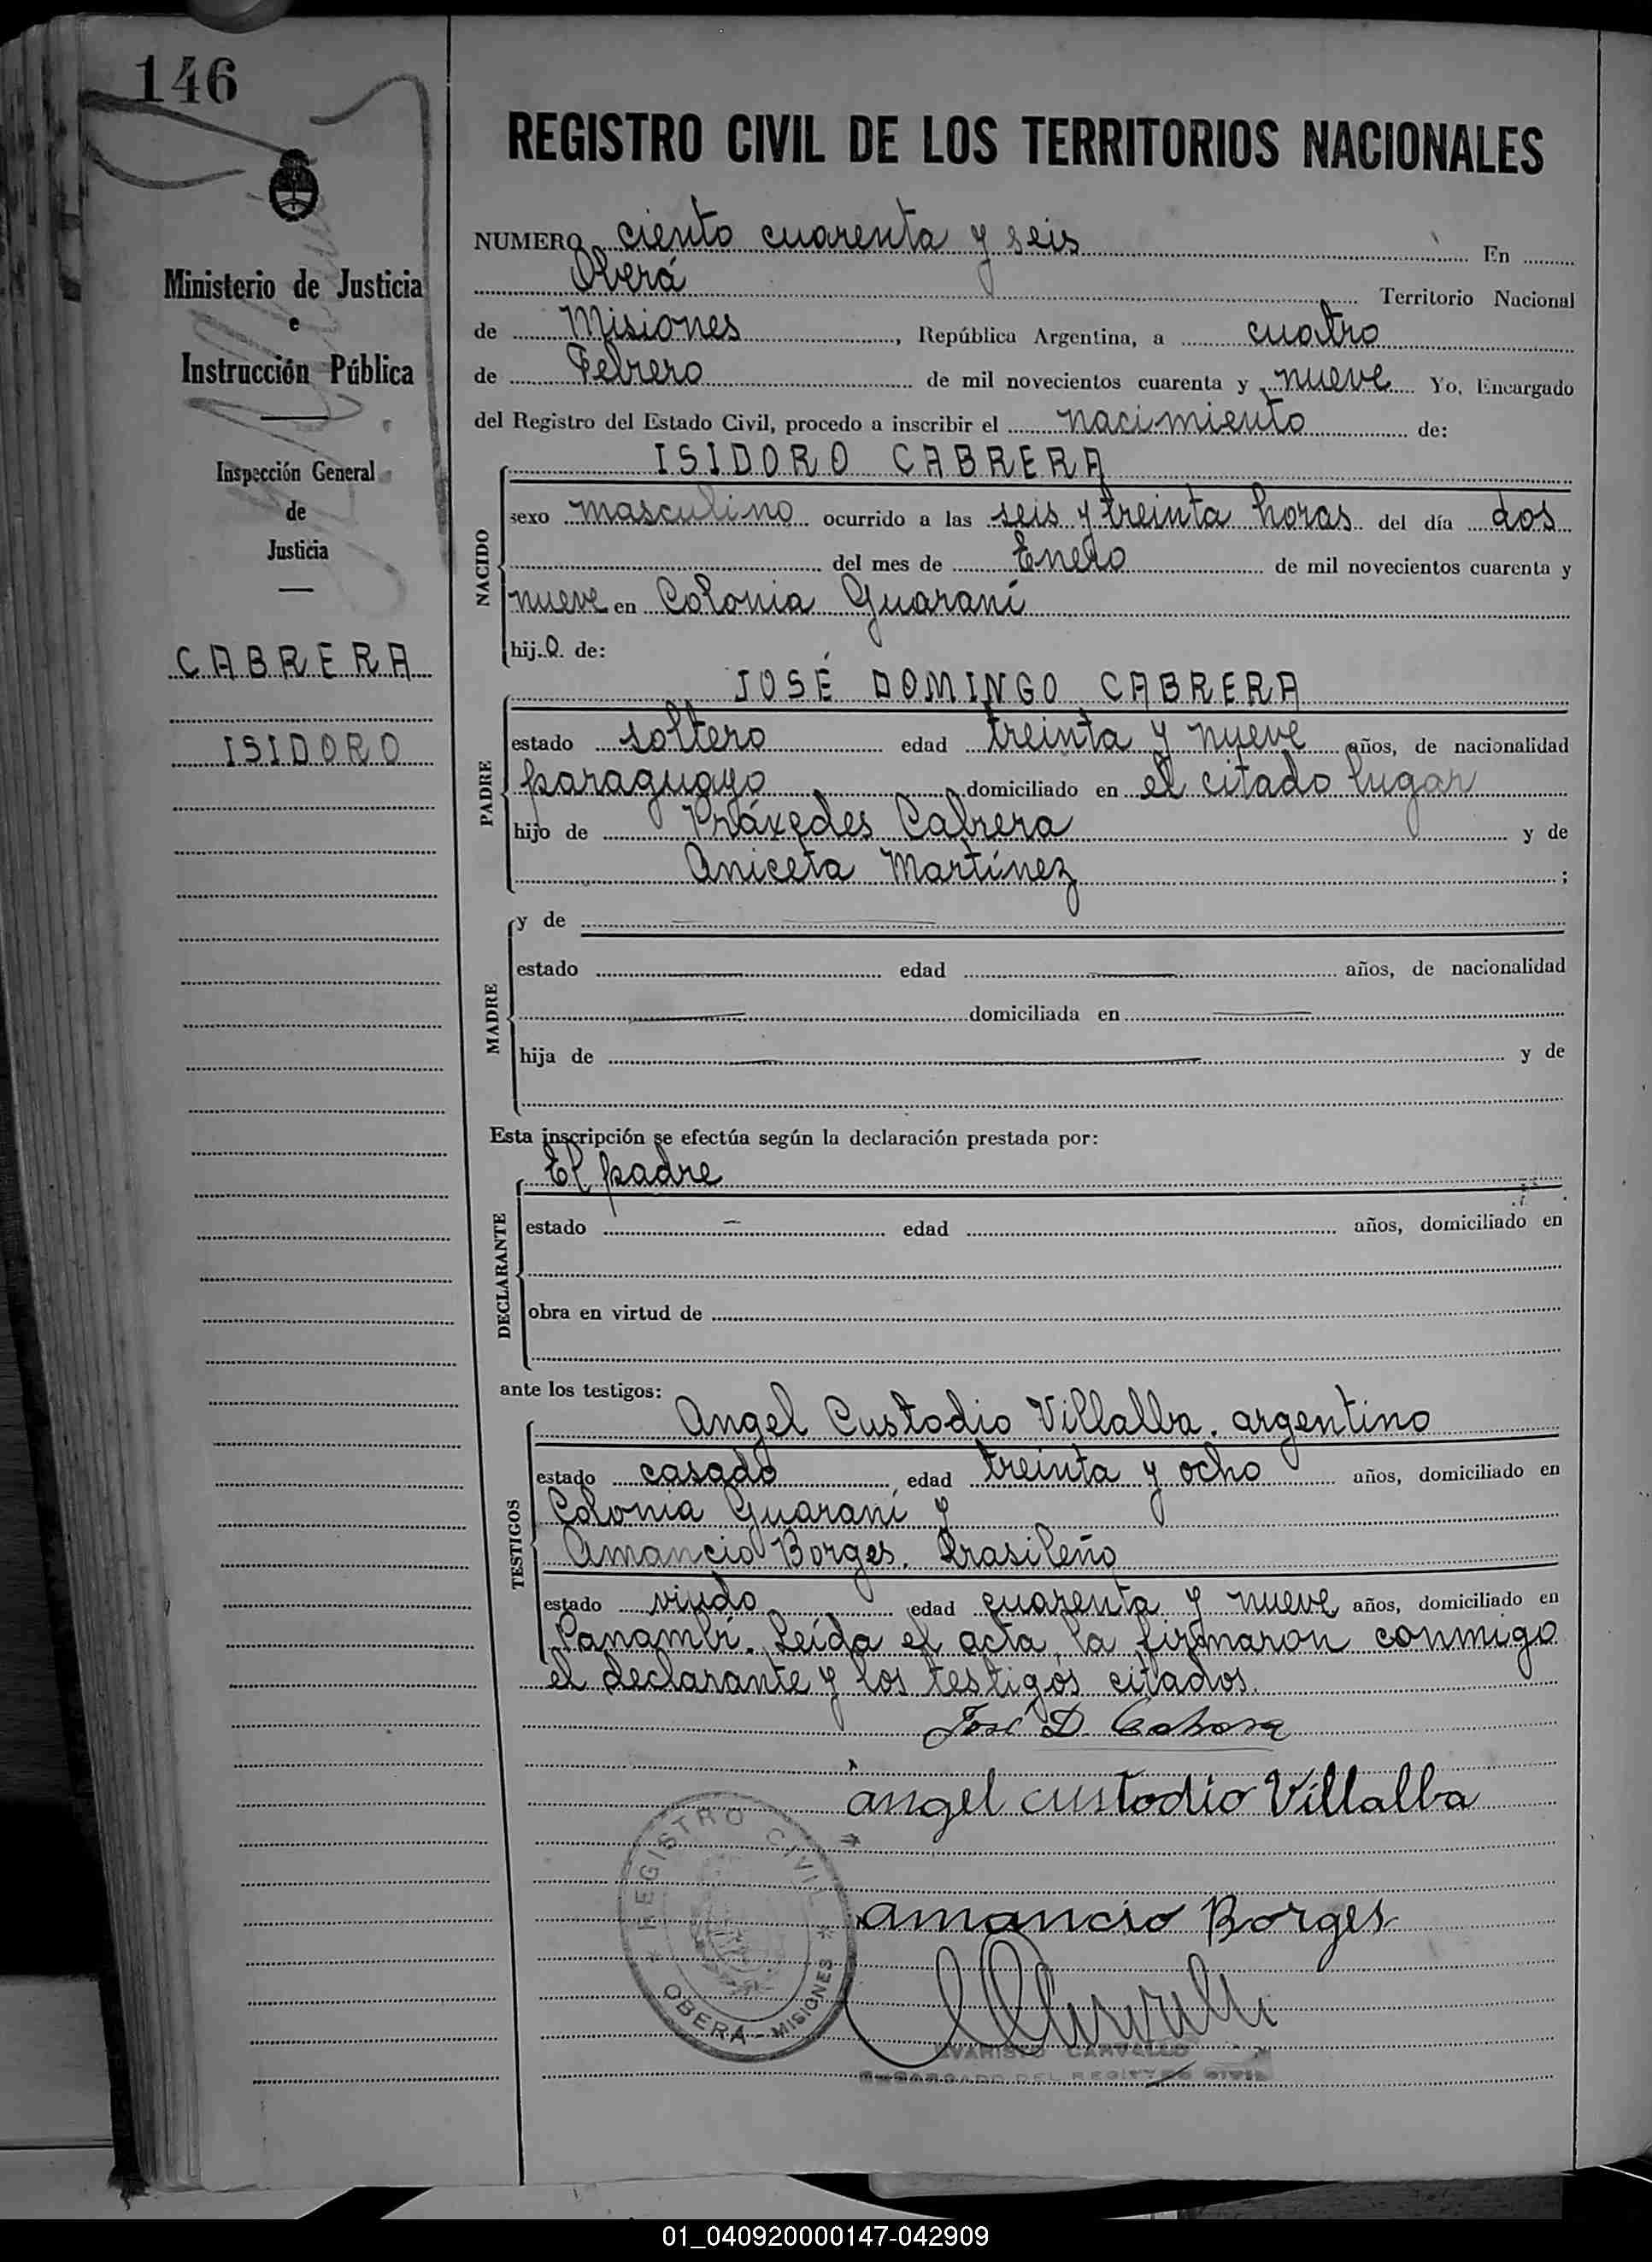 146
Ministerio de Justicia
e
Instrucción Pública
Inspección General
de
Justicia
CABRERA
ISIDORO
REGISTRO CIVIL DE LOS TERRITORIOS NACIONALES
NUMERO ciento cuarenta y seis En
Oberá Territorio Nacional
de Misiones, República Argentina, a cuatro
de Febrero de mil novecientos cuarenta y nueve Yo, Encargado
del Registro del Estado Civil, procedo a inscribir el nacimiento de:
NACIDO
ISIDORO CABRERA
sexo masculino ocurrido a las seis y treinta horas del día dos
del mes de Enero de mil novecientos cuarenta y
nueve en Colonia Guaraní
hijo de:
PADRE
JOSÉ DOMINGO CABRERA
estado soltero edad treinta y nueve años, de nacionalidad
paraguayo domiciliado en el citado lugar
hijo de Práxedes Cabrera y de
Aniceta Martínez;
MADRE
y de
estado edad años, de nacionalidad
domiciliada en
hija de y de
Esta inscripción se efectúa según la declaración prestada por:
DECLARANTE
El padre
estado edad años, domiciliado en
obra en virtud de
ante los testigos:
TESTIGOS
Angel Custodio Villalba. argentino
estado casado edad treinta y ocho años, domiciliado en
Colonia Guaraní y
Amancio Borges. Brasileño
estado viudo edad cuarenta y nueve años, domiciliado en
Panambí. Leída el acta, la firmaron conmigo
el declarante y los testigos citados.
José D. Cabrera
angel custodio Villalba
amancio Borges
* REGISTRO CIVIL *
OBERÁ - MISIONES
EVARISTO CARVALLO
ENCARGADO DEL REGISTRO CIVIL
01_040920000147-042909